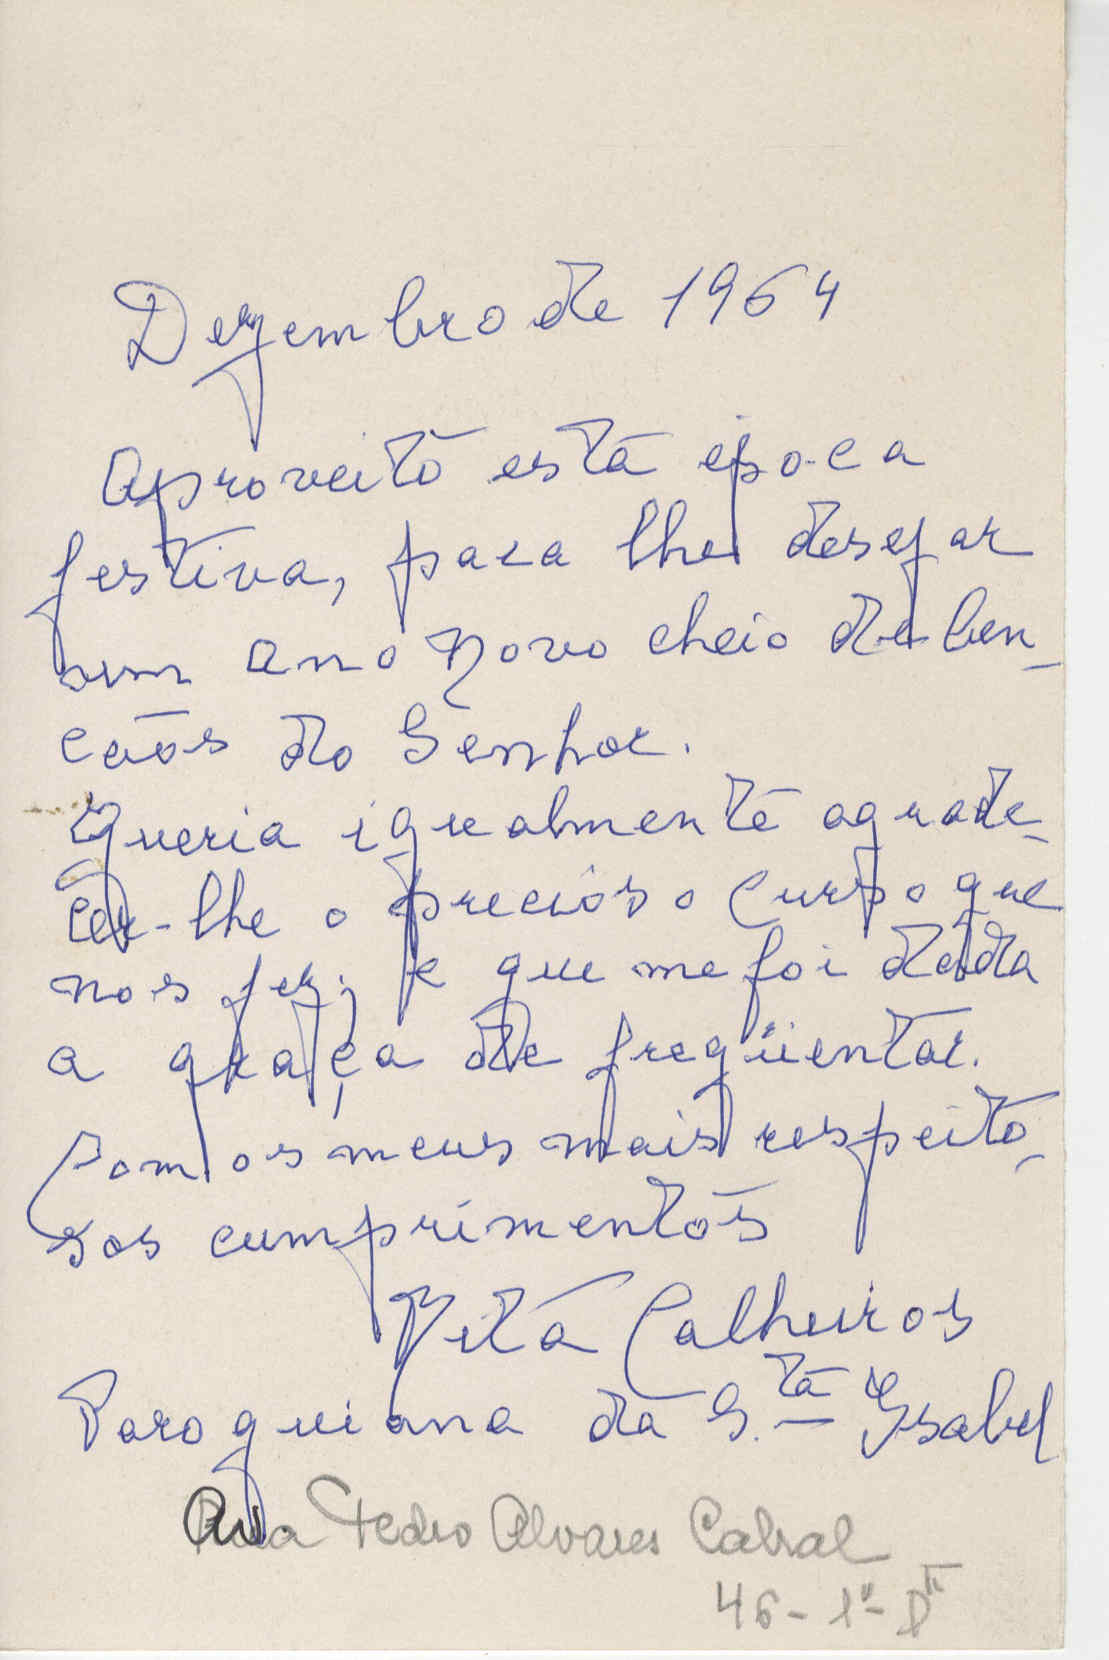 Dezembro de 1964
Aproveito esta época
festiva, para lhe desejar
um ano novo cheio de ben_
ções do Senhor.
Queria igualmente agrade_
cer-lhe o precioso curso que
nos fez; e que me foi dada
a graça de freqüentar.
Com os meus mais respeito_
sos cumprimentos
Calheiros
Paroquiana da S.ta Ysabel
Rua Pedro Alvares Cabral
46-1º-Dt